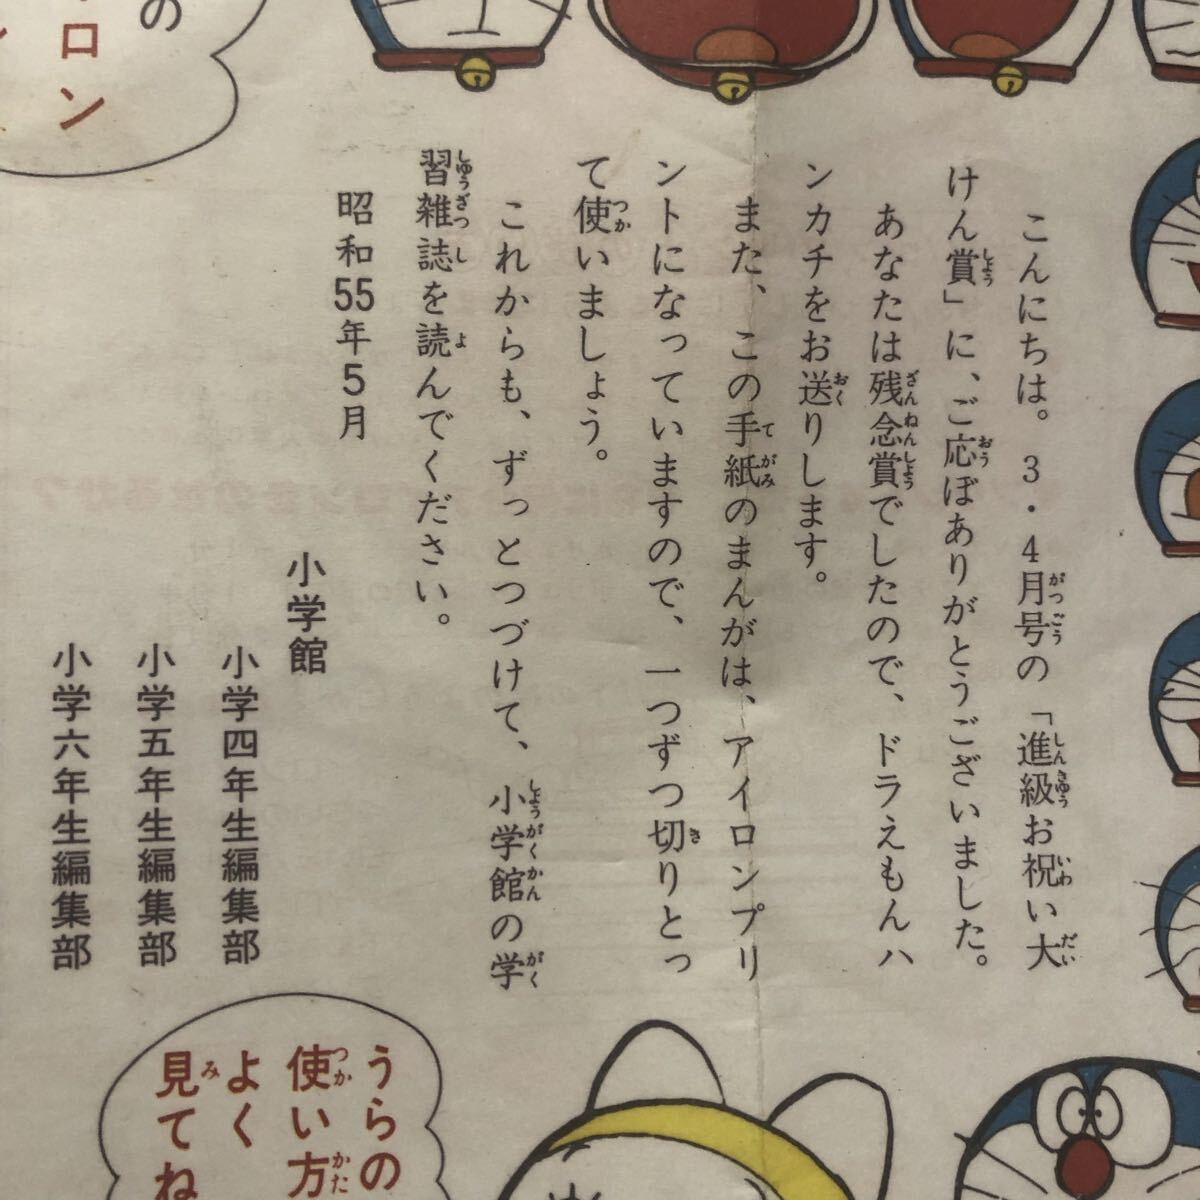 の
ロン
こんにちは。3・4月号の「進級お祝い大
けん賞」に、ご応ぼありがとうございました。
あなたは残念賞でしたので、ドラえもんハ
ンカチをお送りします。
また、この手紙のまんがは、アイロンプリ
ントになっていますので、一つずつ切りとっ
て使いましょう。
これからも、ずっとつづけて、小学館の学
習雑誌を読んでください。
昭和55年5月
小学館
小学四年生編集部
小学五年生編集部
小学六年生編集部
うらの
使い方
よく
見てね